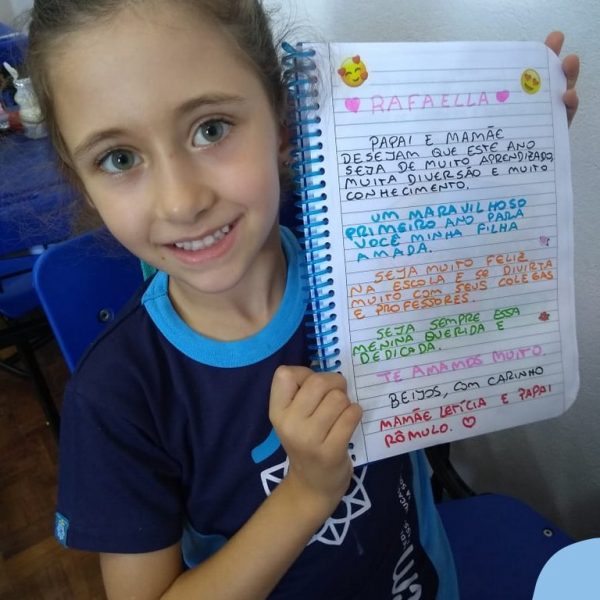 RAFAELLA
PAPAI E MAMÃE
DESEJAM QUE ESTE ANO
SEJA DE MUITO APRENDIZADO,
MUITA DIVERSÃO E MUITO
CONHECIMENTO.
UM MARAVILHOSO
PRIMEIRO ANO PARA
VOCÊ MINHA FILHA
AMADA.
SEJA MUITO FELIZ
NA ESCOLA E SE DIVIRTA
MUITO COM SEUS COLEGAS
E PROFESSORES.
SEJA SEMPRE ESSA
MENINA QUERIDA E
DEDICADA.
TE AMAMOS MUITO.
BEIJOS, COM CARINHO
MAMÃE LETÍCIA E PAPAI
RÔMULO.